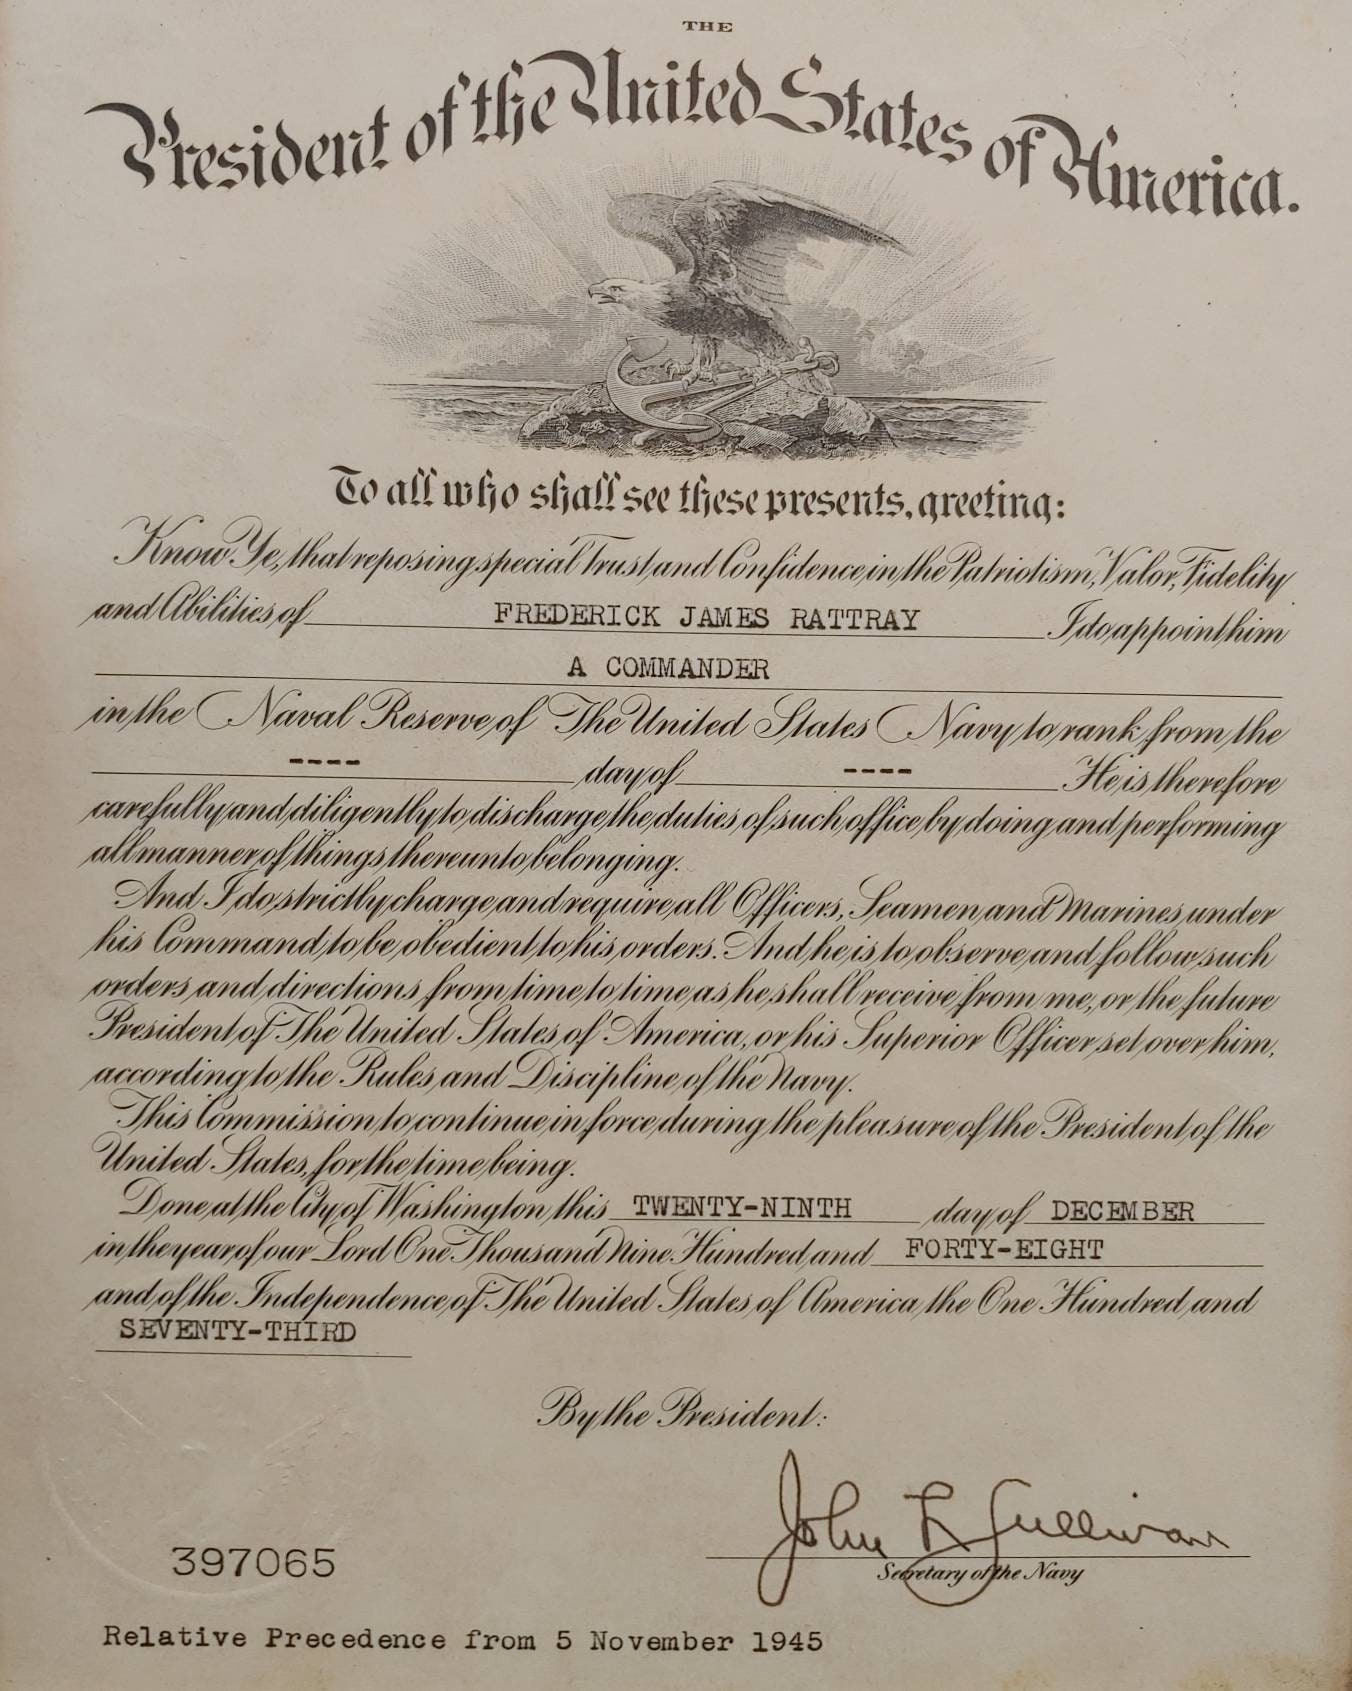 THE
President of the United States of America.
To all who shall see these presents, greeting:
Know Ye, that reposing special Trust and Confidence in the Patriotism, Valor, Fidelity
and Abilities of FREDERICK JAMES RATTRAY I do appoint him
A COMMANDER
in the Naval Reserve of The United States Navy to rank from the
---- day of ---- He is therefore
carefully and diligently to discharge the duties of such office by doing and performing
all manner of things thereunto belonging.
And I do strictly charge and require all Officers, Seamen and Marines under
his Command to be obedient to his orders. And he is to observe and follow such
orders and directions from time to time as he shall receive from me, or the future
President of The United States of America, or his Superior Officer set over him,
according to the Rules and Discipline of the Navy.
This Commission to continue in force during the pleasure of the President of the
United States, for the time being.
Done at the City of Washington this TWENTY-NINTH day of DECEMBER
in the year of our Lord One Thousand Nine Hundred and FORTY-EIGHT
and of the Independence of The United States of America the One Hundred and
SEVENTY-THIRD
By the President:
John L Sullivan
Secretary of the Navy
397065
Relative Precedence from 5 November 1945